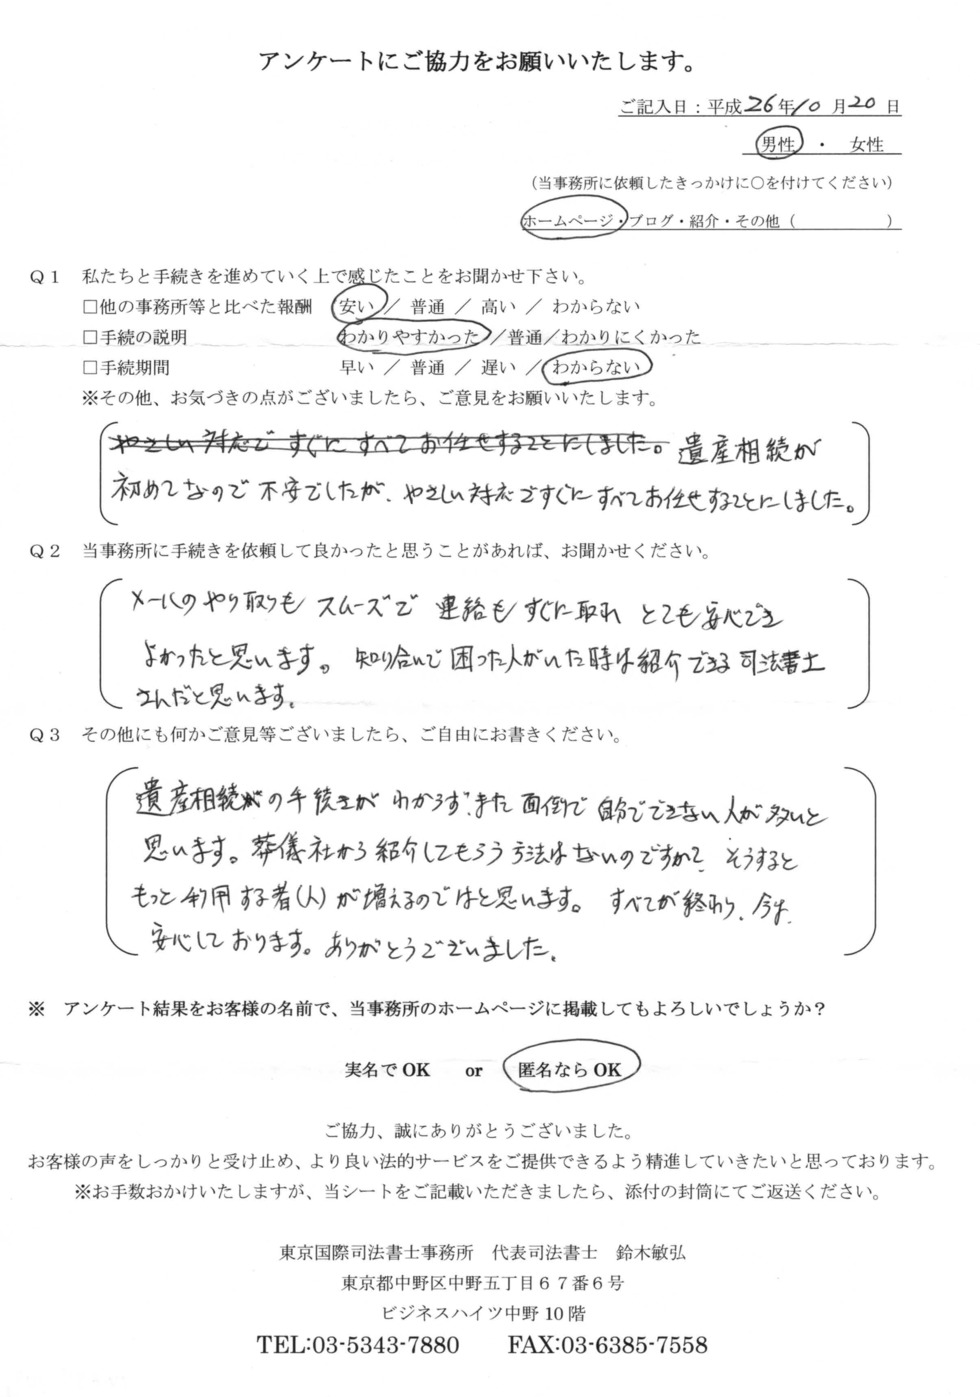 アンケートにご協力をお願いいたします。
ご記入日：平成26年10月20日
男性 ・ 女性
（当事務所に依頼したきっかけに○を付けてください）
ホームページ・ブログ・紹介・その他（　　　　　）
Q1 私たちと手続きを進めていく上で感じたことをお聞かせ下さい。
□他の事務所等と比べた報酬 安い ／ 普通 ／ 高い ／ わからない
□手続の説明 わかりやすかった ／普通／わかりにくかった
□手続期間 早い ／ 普通 ／ 遅い ／ わからない
※その他、お気づきの点がございましたら、ご意見をお願いいたします。
やさしい対応で すぐに すべて お任せすることにしました。遺産相続が
初めてなので 不安でしたが、やさしい対応ですぐにすべてお任せすることにしました。
Q2 当事務所に手続きを依頼して良かったと思うことがあれば、お聞かせください。
メールのやり取りも スムーズで 連絡も すぐに取れ とても安心でき
よかったと思います。 知り合いで困った人がいた時は紹介できる司法書士
さんだと思います。
Q3 その他にも何かご意見等ございましたら、ご自由にお書きください。
遺産相続がの手続きが わからず、また 面倒で 自分でできない人が多いと
思います。葬儀社から紹介してもらう方法はないのですか？ そうすると
もっと利用する者(人)が増えるのではと思います。 すべてが終わり、今は、
安心しております。ありがとうございました。
※ アンケート結果をお客様の名前で、当事務所のホームページに掲載してもよろしいでしょうか？
実名でOK or 匿名ならOK
ご協力、誠にありがとうございました。
お客様の声をしっかりと受け止め、より良い法的サービスをご提供できるよう精進していきたいと思っております。
※お手数おかけいたしますが、当シートをご記載いただきましたら、添付の封筒にてご返送ください。
東京国際司法書士事務所　代表司法書士　鈴木敏弘
東京都中野区中野五丁目６７番６号
ビジネスハイツ中野 10 階
TEL:03-5343-7880 FAX:03-6385-7558